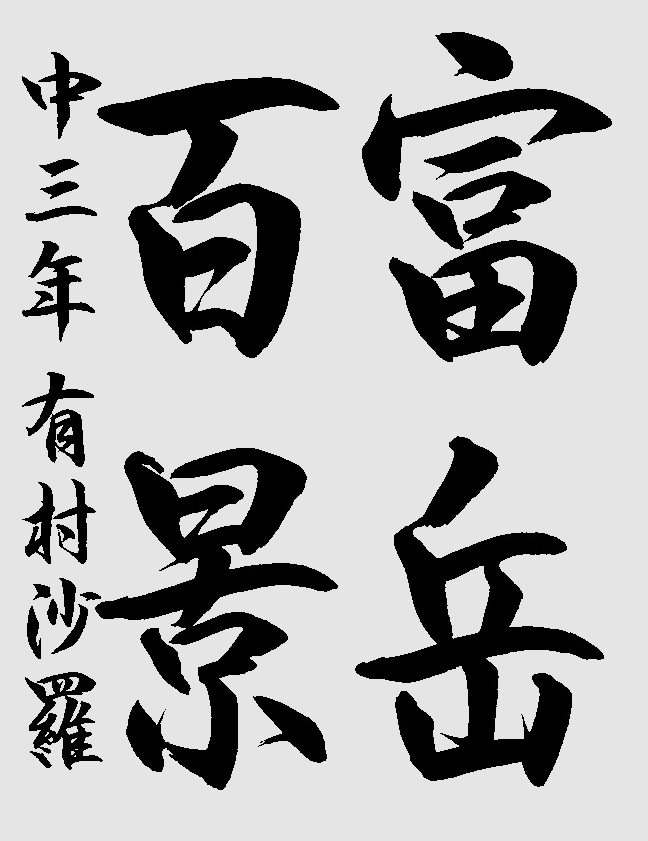 富岳
百景
中三年 有村沙羅